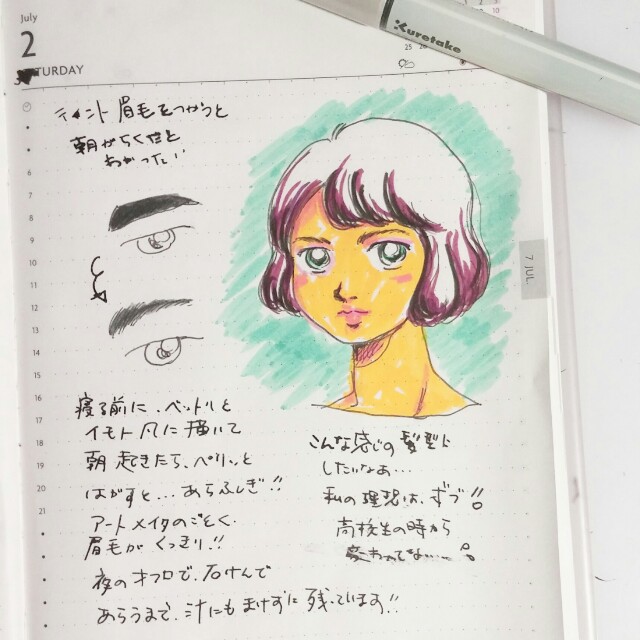 July
2
TURDAY
Kuretake
7 JUL
ティント眉毛をつかうと
朝がらくだと
わかったい
寝る前に、ベットリと
イモト風に描いて
朝起きたら、ペリッと
はがすと…あらふしぎ!!
アートメイクのごとく、
眉毛が くっきり!!
夜のオフロで、石けんで
あらうまで、汁にもまけずに残っています!!
こんな感じの髪型に
したいなあ…
私の理想は、ずっ!!
高校生の時から
変わってない…
6
7
8
9
10
11
12
13
14
15
16
17
18
19
20
21